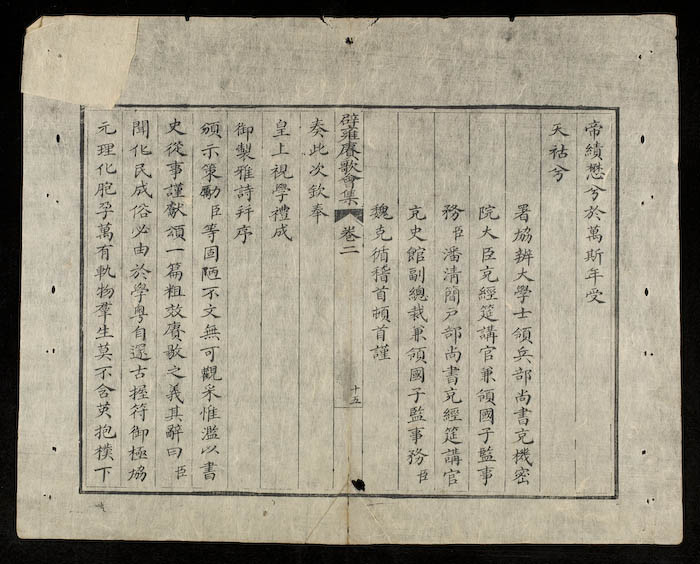 帝績懋兮於萬斯年受
天祜兮
署協辨大學士領兵部尚書充機密
院大臣充經筵講官兼領國子監事
務臣潘清簡戸部尚書充經筵講官
充史館副總裁兼領國子監事務臣
魏克循稽首頓首謹
辟雍賡歌會集 卷二 十五
奏此次欽奉
皇上視學禮成
御製雅詩并序
頒示策勵臣等固陋不文無可觀采惟濫以書
史從事謹獻頌一篇粗效賡歌之義其辭曰臣
聞化民成俗必由於學粤自邃古握符御極協
元理化胞孕萬有軌物羣生莫不含英抱樸下